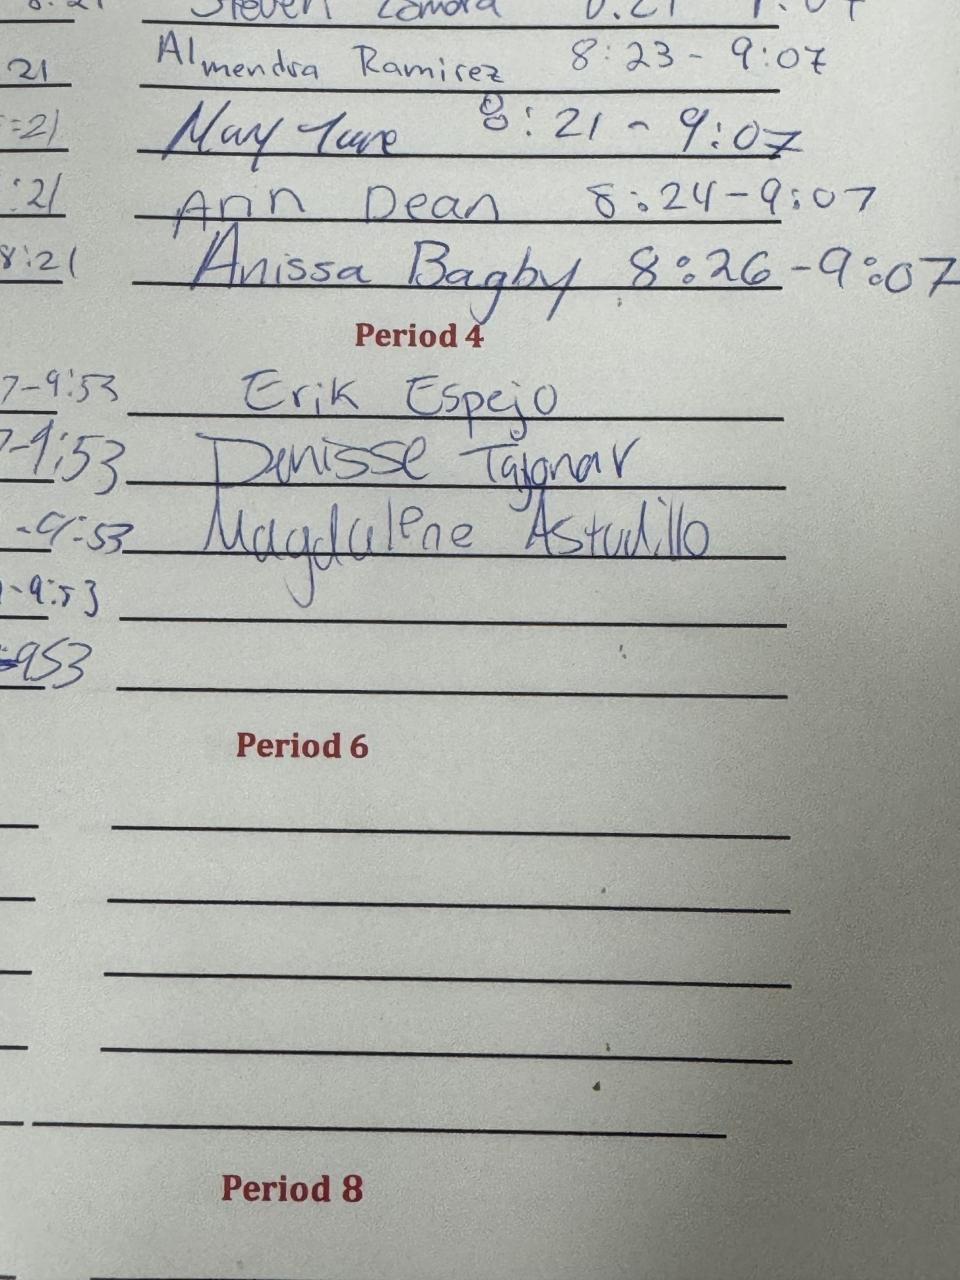 Steven Zamora 8:21 9:07
21 Almendra Ramirez 8:23- 9:07
:21 May 8:21 - 9:07
:21 Ann Dean 8:24-9:07
8:21 Anissa Bagby 8:26-9:07
Period 4
7-9:53 Erik Espejo
7-9:53 Denisse Tajonar
-9:53 Magdalene Astudillo
-9:53
953
Period 6
Period 8